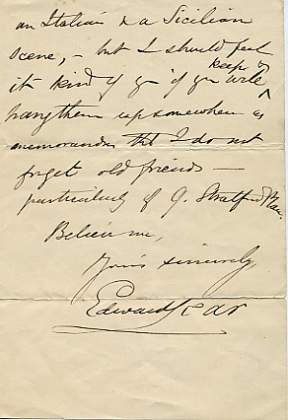 an Italian & a Sicilian
scene, – but I should feel
it kind of you if you will keep &
hang them up somewhere as
memoranda that I do not
forget old friends –
particularly of 9. Stratford Place.
Believe me,
Yours sincerely,
Edward Lear